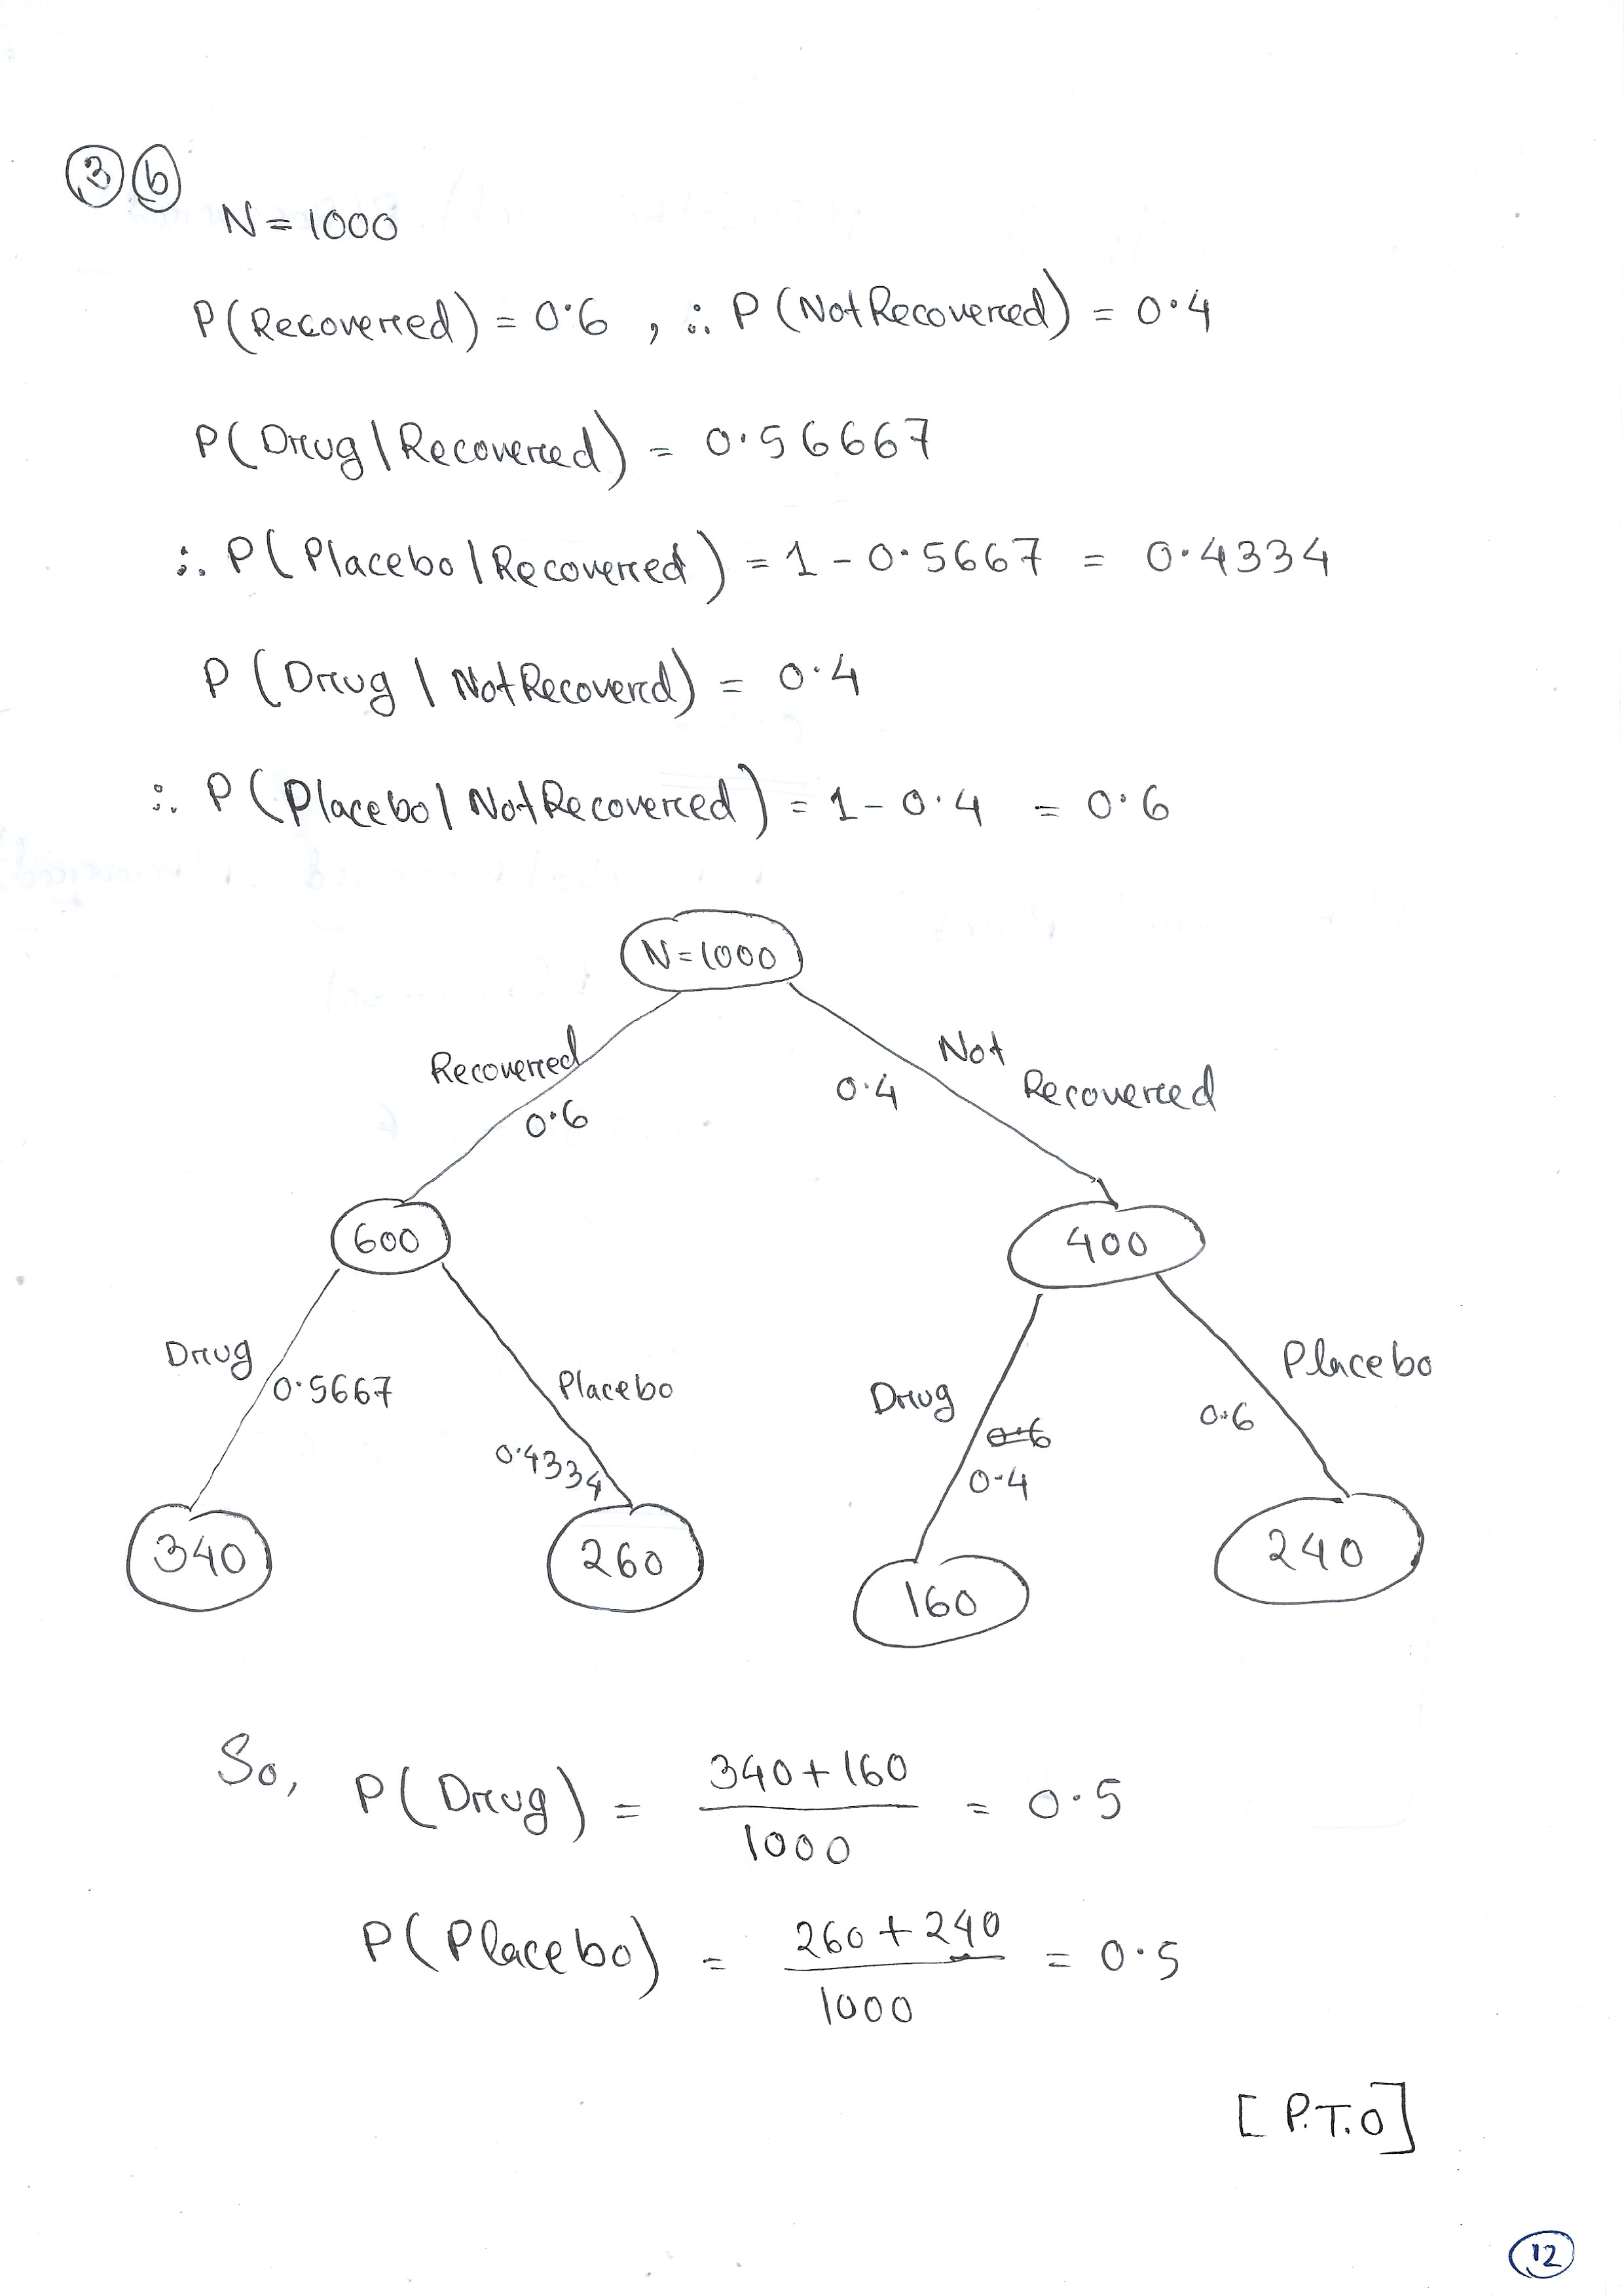 3 b
N = 1000
P(Recovered) = 0.6 , ∴ P(NotRecovered) = 0.4
P(Drug | Recovered) = 0.56667
∴ P(Placebo | Recovered) = 1 - 0.5667 = 0.4334
P(Drug | NotRecoverd) = 0.4
∴ P(Placebo | NotRecovered) = 1 - 0.4 = 0.6
N = 1000
Recovered
0.6
Not
Recovered
0.4
600
400
Drug
0.5667
Placebo
0.4334
Drug
0.6
0.4
Placebo
0.6
340
260
160
240
So, P(Drug) = (340 + 160) / 1000 = 0.5
P(Placebo) = (260 + 240) / 1000 = 0.5
[P.T.O]
12